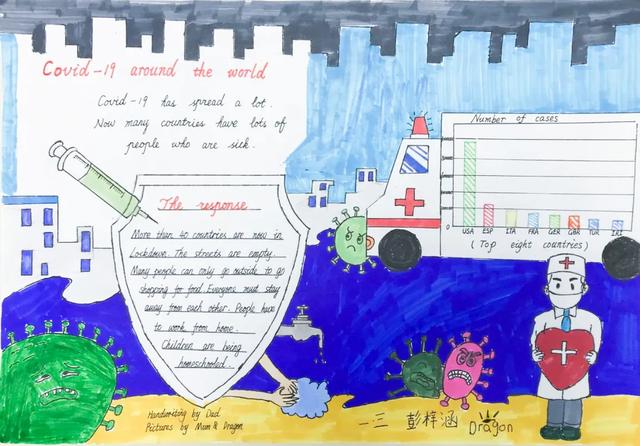 Covid-19 around the world
Covid-19 has spread a lot.
Now many countries have lots of
people who are sick.
The response
More than 40 countries are now in
Lockdown. The streets are empty.
Many people can only go outside to go
shopping for food. Everyone must stay
away from each other. People have
to work from home.
Children are being
homeschooled.
Number of cases
USA ESP ITA FRA GER GBR TUR IRI
(Top eight countries)
Handwriting by Dad
Pictures by Mum & Dragon
一三 彭梓涵 Dragon